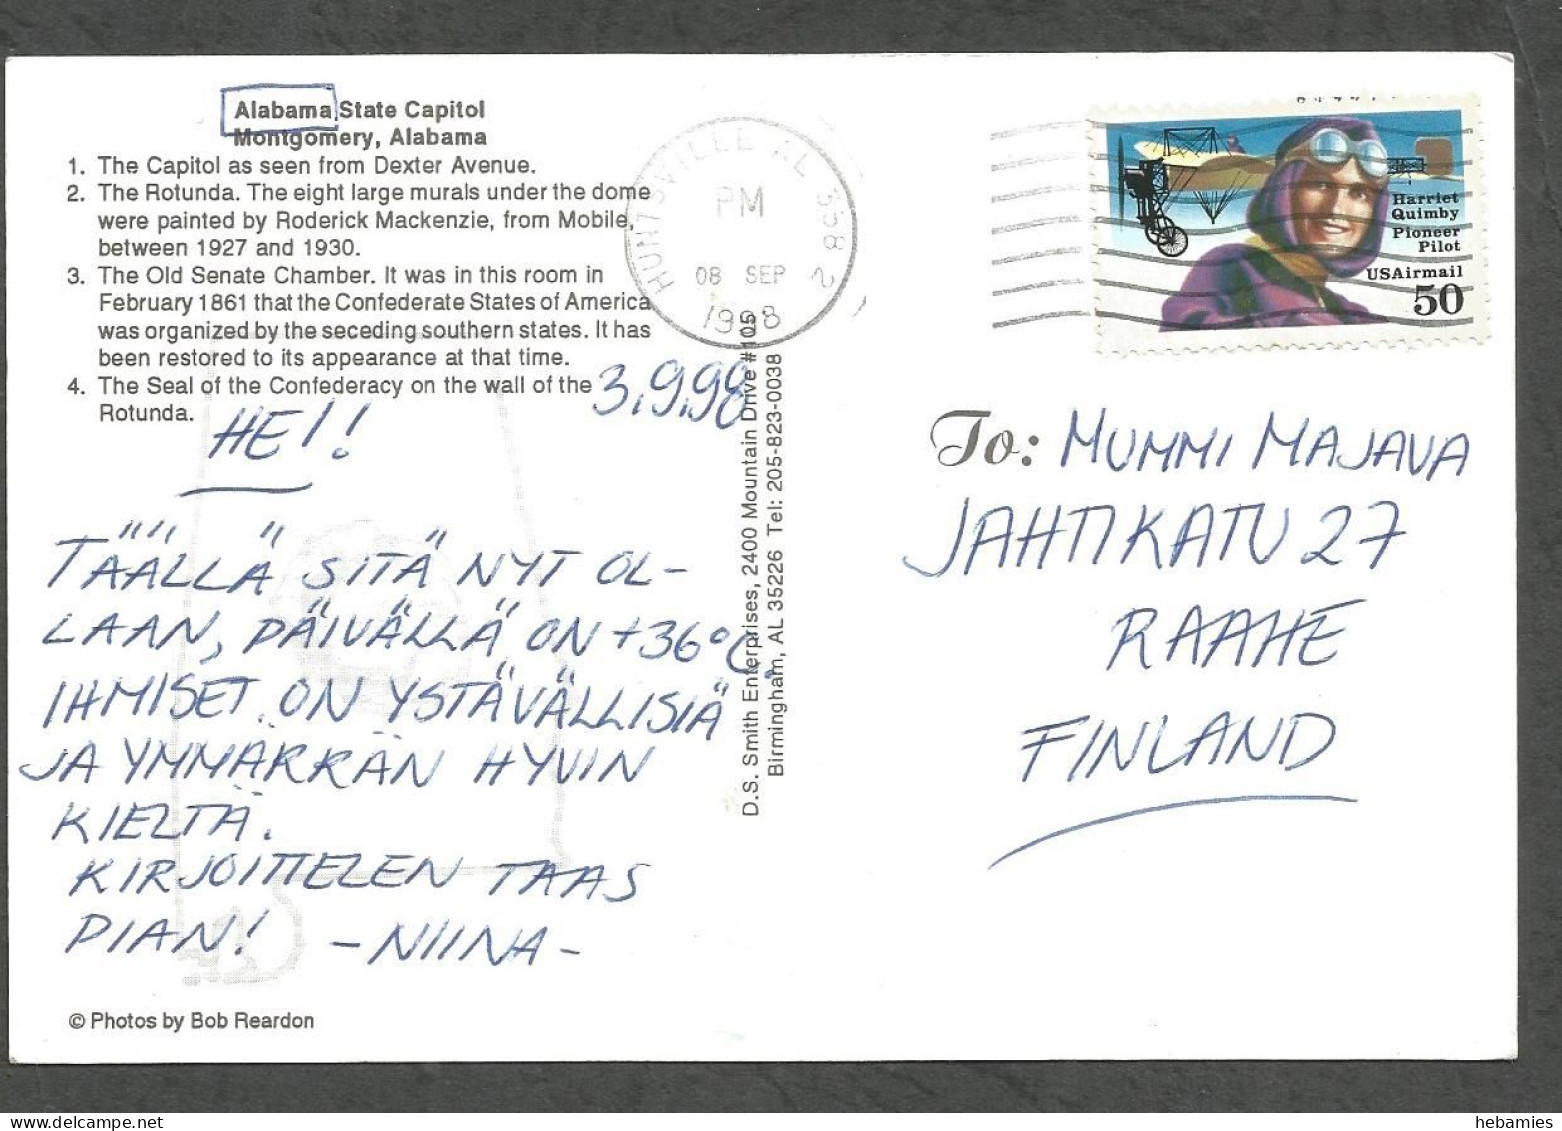 Alabama State Capitol
Montgomery, Alabama
1. The Capitol as seen from Dexter Avenue.
2. The Rotunda. The eight large murals under the dome
were painted by Roderick Mackenzie, from Mobile,
between 1927 and 1930.
3. The Old Senate Chamber. It was in this room in
February 1861 that the Confederate States of America
was organized by the seceding southern states. It has
been restored to its appearance at that time.
4. The Seal of the Confederacy on the wall of the
Rotunda.
3.9.98
HEI!
TÄÄLLÄ SITÄ NYT OL-
LAAN, PÄIVÄLLÄ ON +36°C.
IHMISET ON YSTÄVÄLLISIÄ
JA YMMÄRRÄN HYVIN
KIELTÄ.
KIRJOITTELEN TAAS
PIAN! -NIINA-
© Photos by Bob Reardon
D.S. Smith Enterprises, 2400 Mountain Drive #105
Birmingham, AL 35226 Tel: 205-823-0038
HUNTSVILLE AL 358 2
PM
08 SEP
1998
Harriet
Quimby
Pioneer
Pilot
USAirmail
50
To: MUMMI MAJAVA
JAHTIKATU 27
RAAHE
FINLAND
hebamies